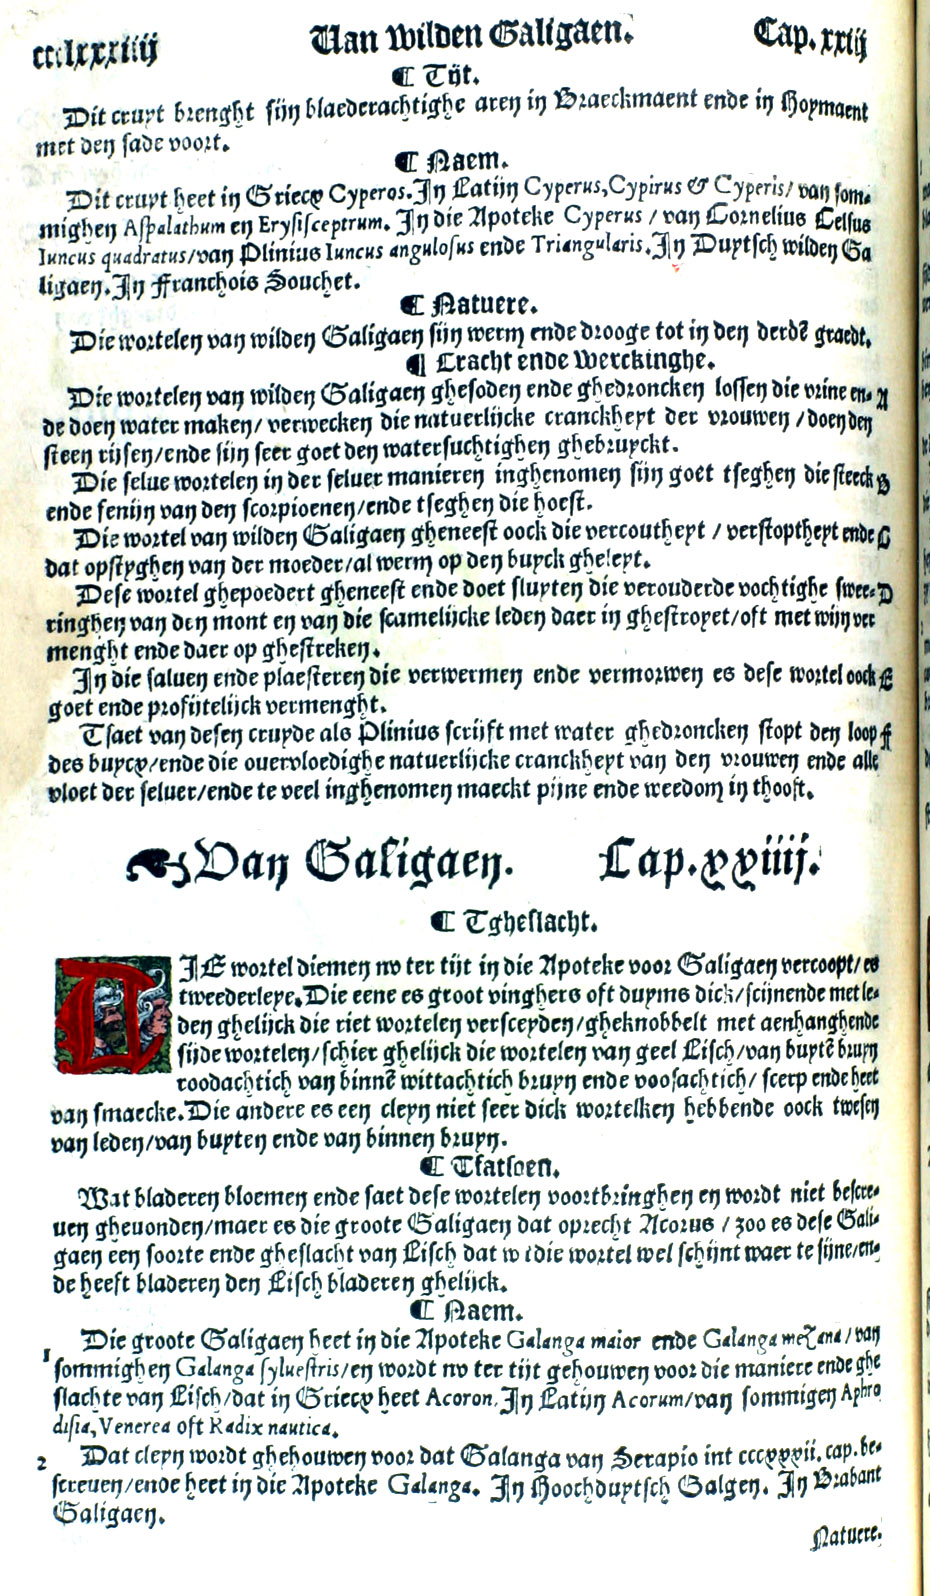 ccclxxxiiij Van wilden Galigaen. Cap. xxiij
¶ Tijt.
Dit cruyt brenght sijn blaederachtighe aren in Braeckmaent ende in Hoymaent
met den sade voort.
¶ Naem.
Dit cruyt heet in Griecx Cyperos. In Latijn Cyperus, Cypirus & Cyperis/ van som-
mighen Aspalathum en Erysisceptrum. In die Apoteke Cyperus / van Cornelius Celsus
Iuncus quadratus/van Plinius Iuncus angulosus ende Triangularis. In Duytsch wilden Ga
ligaen. In Franchois Souchet.
¶ Natuere.
Die wortelen van wilden Galigaen sijn werm ende drooge tot in den derdē graedt.
¶ Cracht ende Werckinghe.
Die wortelen van wilden Galigaen ghesoden ende ghedroncken lossen die vrine en- A
de doen water maken/ verwecken die natuerlijcke cranckheyt der vrouwen / doen den
steen rijsen/ende sijn seer goet den watersuchtighen ghebruyckt.
Die selue wortelen in der seluer manieren inghenomen sijn goet tseghen die steeck B
ende fenijn van den scorpioenen/ende tseghen die hoest.
Die wortel van wilden Galigaen gheneest oock die vercoutheyt / verstoptheyt ende C
dat opstyghen van der moeder/al werm op den buyck gheleyt.
Dese wortel ghepoedert gheneest ende doet sluyten die verouderde vochtighe swee- D
ringhen van den mont en van die scamelijcke leden daer in ghestroyet/oft met wijn ver
menght ende daer op ghestreken.
In die saluen ende plaesteren die verwermen ende vermorwen es dese wortel oock E
goet ende profijtelijck vermenght.
Tsaet van desen cruyde als Plinius scrijft met water ghedroncken stopt den loop F
des buycx/ende die ouervloedighe natuerlijcke cranckheyt van den vrouwen ende alle
vloet der seluer/ende te veel inghenomen maeckt pijne ende weedom in thooft.
Van Galigaen. Cap. xxiiij.
¶ Tgheslacht.
DIE wortel diemen nv ter tijt in die Apoteke voor Galigaen vercoopt/ es
tweederleye. Die eene es groot vinghers oft duyms dick/scijnende met le-
den ghelijck die riet wortelen versceyden/gheknobbelt met aenhanghende
sijde wortelen/schier ghelijck die wortelen van geel Lisch/van buytē bruyn
roodachtich van binnē wittachtich bruyn ende voosachtich/ scerp ende heet
van smaecke. Die andere es een cleyn niet seer dick wortelken hebbende oock twesen
van leden/van buyten ende van binnen bruyn.
¶ Tfatsoen.
Wat bladeren bloemen ende saet dese wortelen voortbringhen en wordt niet bescre-
uen gheuonden/maer es die groote Galigaen dat oprecht Acorus / zoo es dese Gali-
gaen een soorte ende gheslacht van Lisch dat wt die wortel wel schijnt waer te sijne/en-
de heeft bladeren den Lisch bladeren ghelijck.
¶ Naem.
1 Die groote Galigaen heet in die Apoteke Galanga maior ende Galanga mezana/ van
sommighen Galanga syluestris/en wordt nv ter tijt gehouwen voor die maniere ende ghe
slachte van Lisch/dat in Griecx heet Acoron. In Latijn Acorum/van sommigen Aphro
disia, Venerea oft Radix nautica.
2 Dat cleyn wordt ghehouwen voor dat Galanga van Serapio int cccxxxii. cap. be-
screuen/ende heet in die Apoteke Galanga. In Hoochduytsch Galgen. In Brabant
Galigaen.
Natuere.